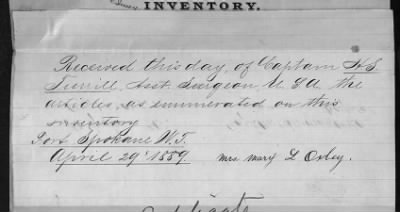 INVENTORY.
Received this day, of Captain H. S.
Turrill, Asst. Surgeon U.S.A. the
articles, as enumerated on this
inventory
Fort Spokane W.T.
April 29' 1889. Mrs Mary L Oxley.